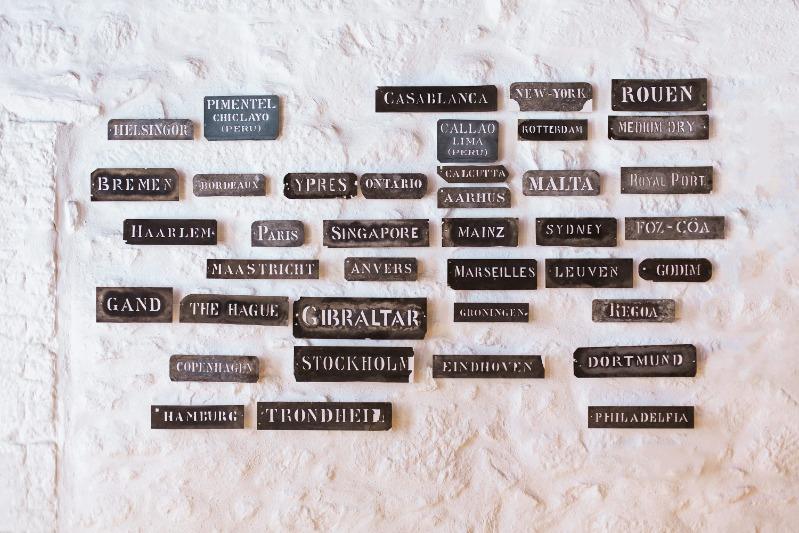 CASABLANCA
NEW-YORK
ROUEN
PIMENTEL
CHICLAYO
(PERU)
HELSINGÖR
CALLAO
LIMA
(PERU)
ROTTERDAM
MEDIUM DRY
BREMEN
BORDEAUX
YPRES
ONTARIO
CALCUTTA
AARHUS
MALTA
ROYAL PORT
HAARLEM
PARIS
SINGAPORE
MAINZ
SYDNEY
FOZ-CÔA
MAASTRICHT
ANVERS
MARSEILLES
LEUVEN
GODIM
GAND
THE HAGUE
GIBRALTAR
GRONINGEN
REGOA
COPENHAGEN
STOCKHOLM
EINDHOVEN
DORTMUND
HAMBURG
TRONDHEIM
PHILADELFIA